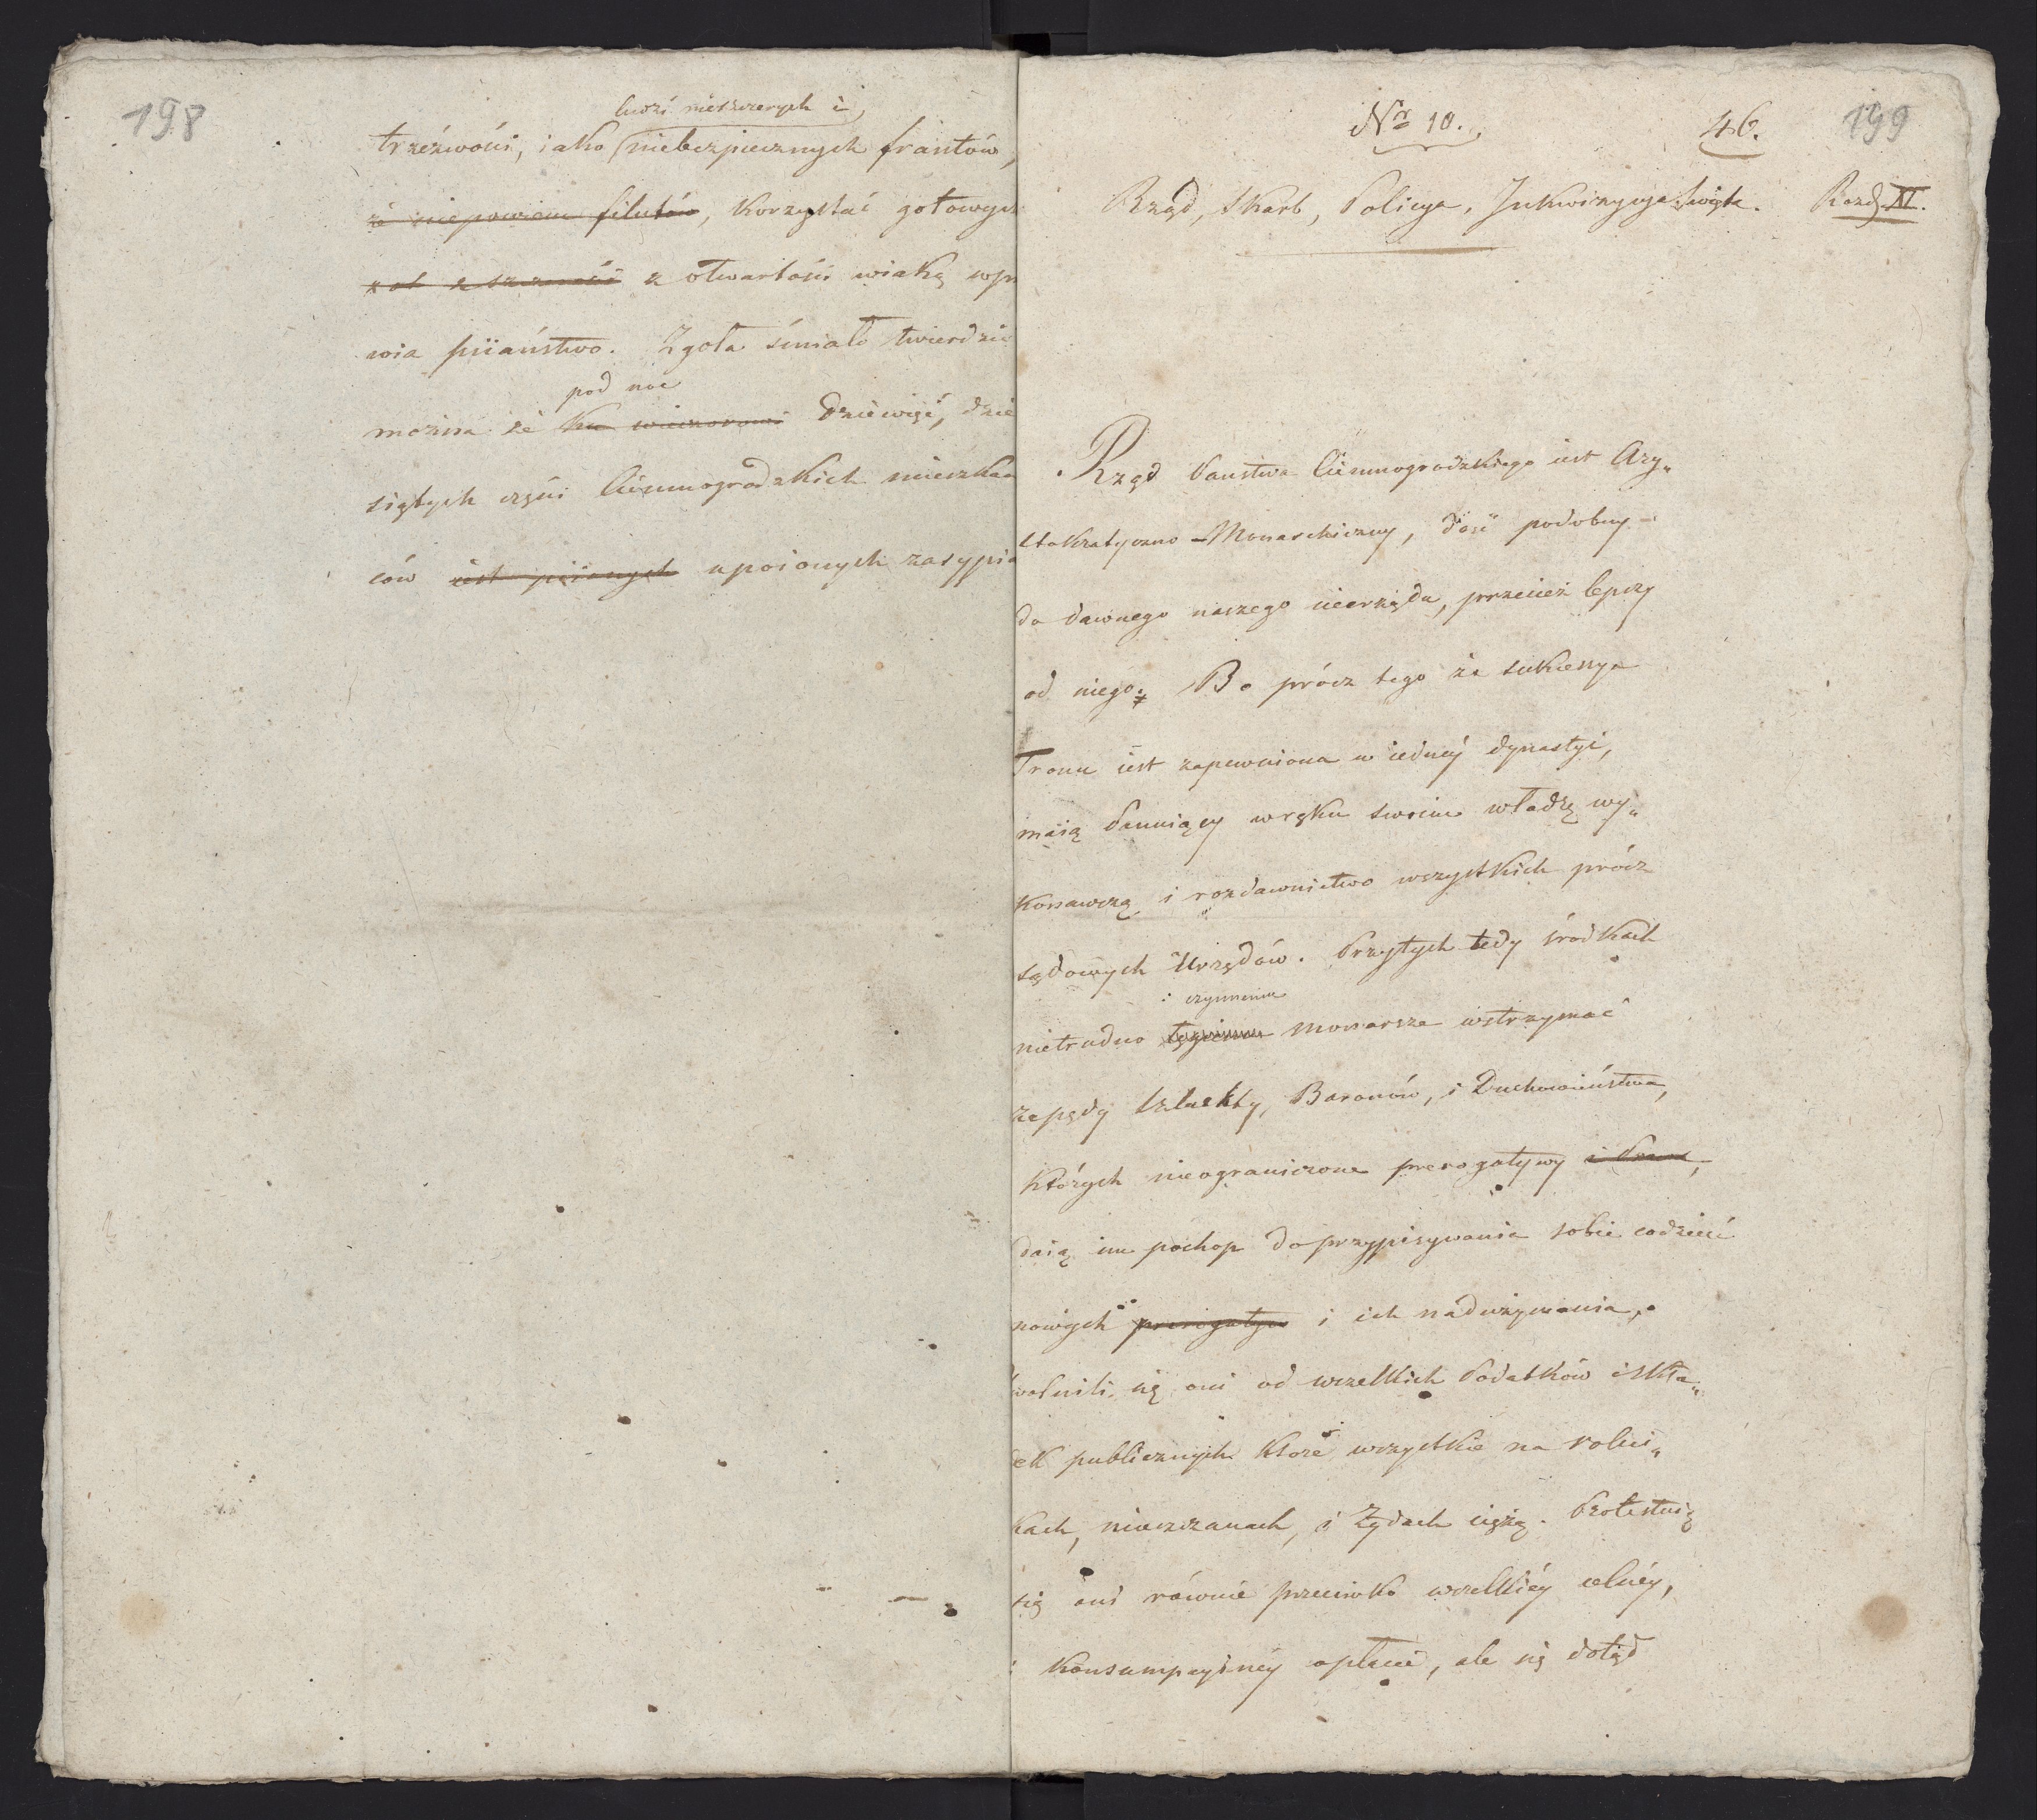 198
ludzi nieszczerych i
trzéźwości, iako niebezpiecznych frantów,
że niepowiem filutów, korzystać gotowych
z otwartości wiaką wpra
wia piiaństwo. Zgoła śmiało twierdzić
pod noc
można że ku wieczorowi dziewięć, dzie
siątych części Ciemnogrodzkich mieszkań
ców iest piianych upoionych zasypia
Nr 10.
46.
199
Rząd, Skarb, Policya, Inkwizycya święta.
Rozdz. XI.
Rząd Państwa Ciemnogrodzkiego iest Ary„
stokratyczno-Monarchiczny, dość podobny
do dawnego naszego nierządu, przecież lepszy
od niego. Bo prócz tego że sukcessya
Tronu iest zapewniona w iedney dynastyi,
maią Panuiący w ręku swoim władzę wy„
konawczą, i rozdawnictwo wszystkich prócz
sądowych Urzędów. Przytych tedy środkach
i czynnemu
nietrudno tęgiemu Monarsze wstrzymać
zapędy szlachty, Baronów, i Duchowieństwa,
których nieograniczone prerogatywy i Prawa,
daią im pochop do przypisywania sobie codzień
nowych prerogatyw i ich nadużywania,
wolnili się oni od wszelkich Podatków i skła„
dek publicznych które wszystkie na rolni„
kach, mieszczanach, i Żydach ciężą. Protestuią
się oni równie przeciwko wszelkiéy celnéy,
i konsumpcyinéy opłacie, ale się dotąd